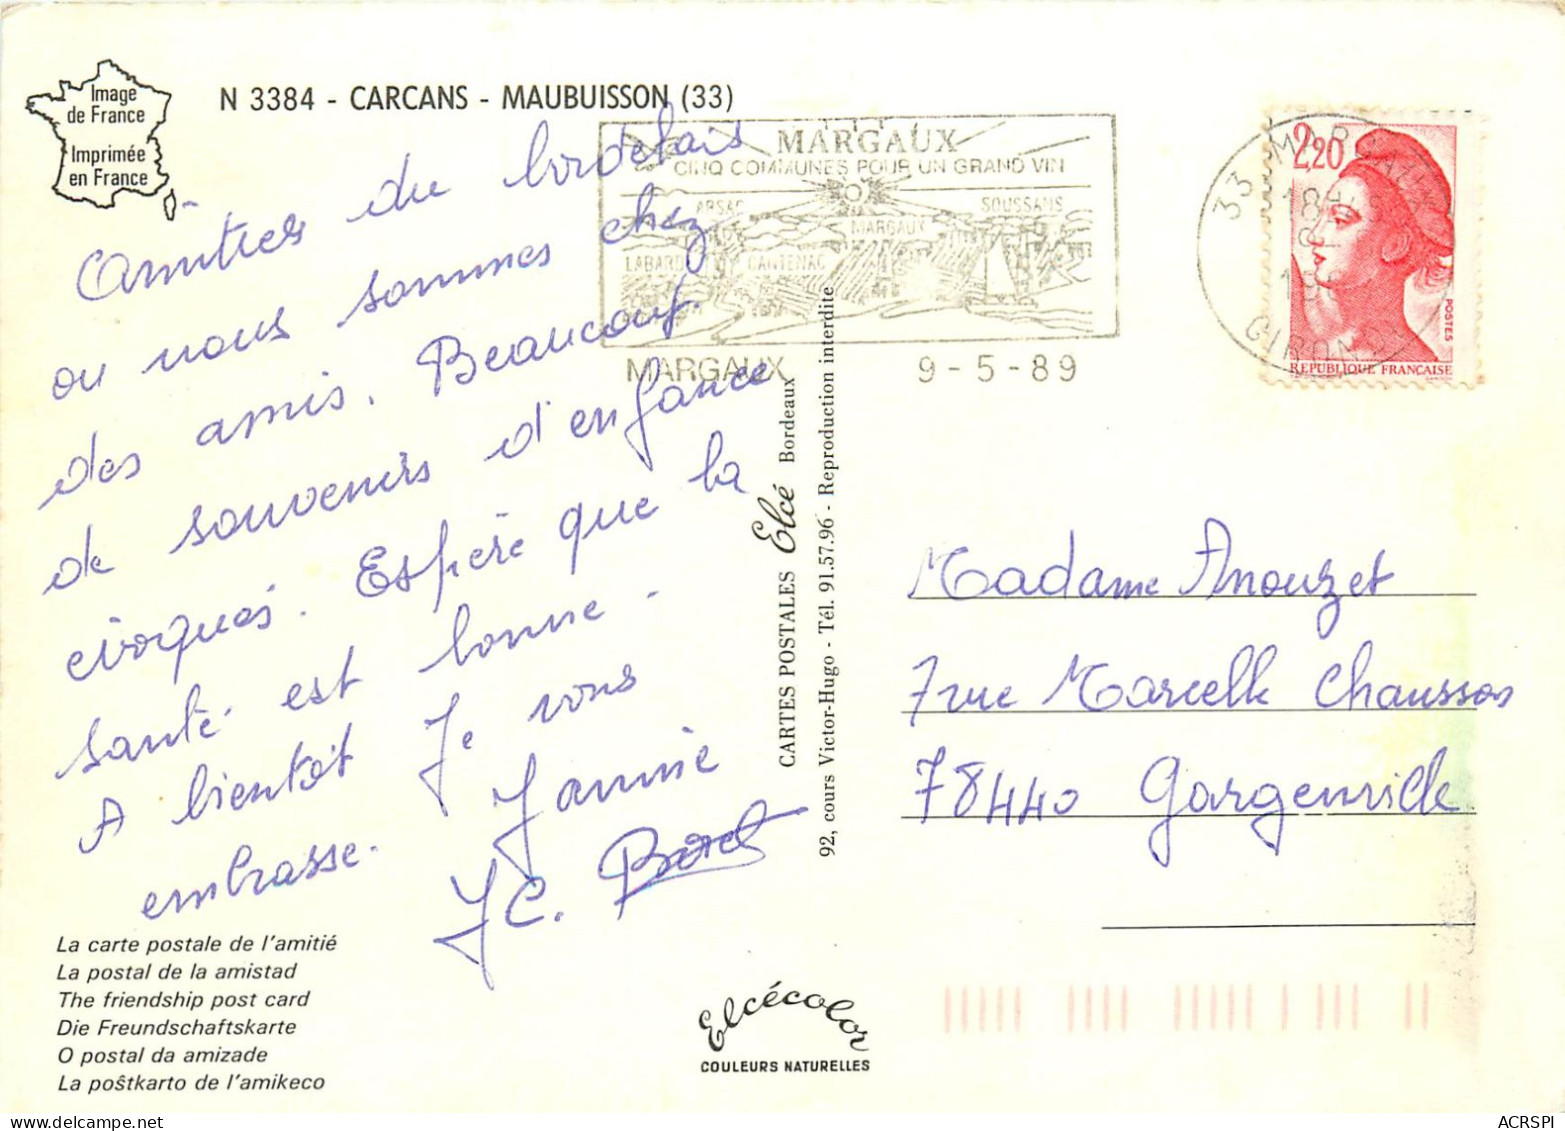 Image
de France
Imprimée
en France
N 3384 - CARCANS - MAUBUISSON (33)
MARGAUX
CINQ COMMUNES POUR UN GRAND VIN
ARSAC
SOUSSANS
MARGAUX
LABARD
CANTENAC
MARGAUX
9-5-89
2,20
POSTES
REPUBLIQUE FRANCAISE
Amitiés du bordelais
ou nous sommes chez
des amis. Beaucoup
de souvenirs d'enfance
évoqués. Espère que la
santé est bonne.
A bientôt Je vous
embrasse. Jannie
JC. Borel
La carte postale de l'amitié
La postal de la amistad
The friendship post card
Die Freundschaftskarte
O postal da amizade
La poŝtkarto de l'amikeco
CARTES POSTALES Elcé Bordeaux
92, cours Victor-Hugo - Tél. 91.57.96 - Reproduction interdite
Elcécolor
COULEURS NATURELLES
Madame Anouzet
7 rue Marcelle Chausson
78440 Gargenville
ACRSPI